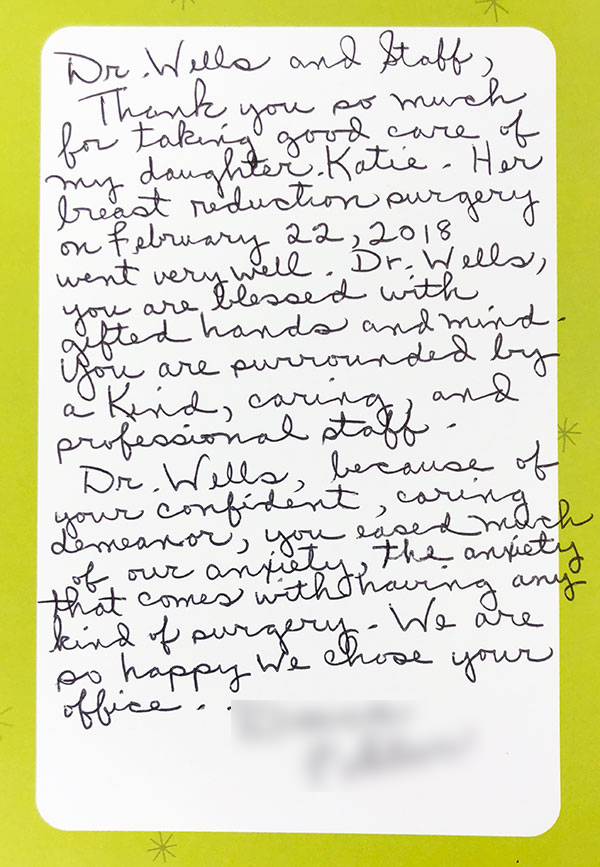 Dr. Wells and Staff,
Thank you so much
for taking good care of
my daughter Katie. Her
breast reduction surgery
on February 22, 2018
went very well. Dr. Wells,
you are blessed with
gifted hands and mind.
You are surrounded by
a kind, caring, and
professional staff.
Dr. Wells, because of
your confident, caring
demeanor, you eased much
of our anxiety, the anxiety
that comes with having any
kind of surgery. We are
so happy we chose your
office..